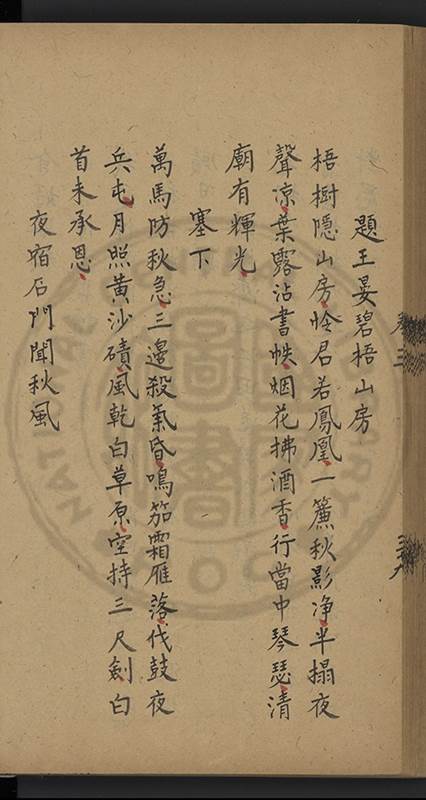 題王晏碧梧山房
梧樹隱山房怜君若鳳凰一簾秋影净半搨夜
聲凉葉露沾書帙烟花拂酒香行當中琴瑟清
廟有輝光
塞下
萬馬防秋急三邊殺氣昏鳴笳霜雁落伐鼓夜
兵屯月照黃沙磧風乾白草原空持三尺劍白
首未承恩
夜宿石門聞秋風